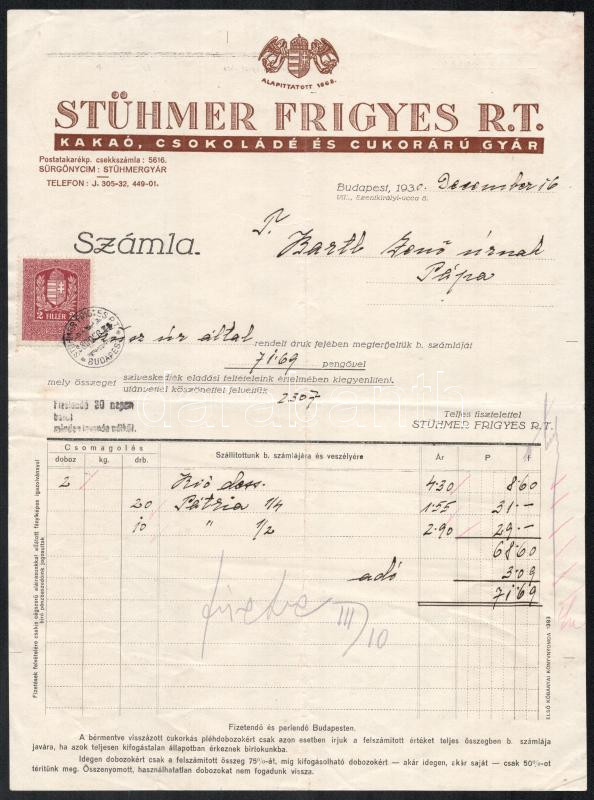 ALAPITTATOTT 1868.
STÜHMER FRIGYES R.T.
KAKAÓ, CSOKOLÁDÉ ÉS CUKORÁRÚ GYÁR
Postatakarékp. csekkszámla : 5616.
SÜRGÖNYCIM : STÜHMERGYÁR
TELEFON : J. 305-32, 449-01.
Budapest, 1930. December 16
VIII., Szentkirályi-ucca 8.
Számla.
T. Barth Zenő úrnak
Pápa
2 FILLÉR
BUDAPEST
úr által rendelt áruk fejében megterheljük b. számláját
71·69 pengővel
mely összeget sziveskedjék eladási feltételeink értelmében kiegyenlíteni.
utánvettel köszönettel felvettük
2307
Fizetendő 30 napon
belül
minden levonás nélkül.
Teljes tisztelettel
STÜHMER FRIGYES R.T.
Csomagolás
doboz kg. drb. Szállítottunk b. számlájára és veszélyére Ár P f
2 Rió dess. 4·30 8·60
20 Pátria 1/4 1·55 31·—
10 " 1/2 2·90 29·—
68·60
adó 3·09
71·69
fizetve III/10
Fizetendő és perlendő Budapesten.
A bérmentve visszázott cukorkás pléhdobozokért csak azon esetben irjuk a felszámított értéket teljes összegben b. számlája
javára, ha azok teljesen kifogástalan állapotban érkeznek birtokunkba.
Idegen dobozokért csak a felszámított összeg 75%-át, míg kifogásolható dobozokért — akár idegen, akár saját — csak 50%-ot
térítünk meg. Össznyomott, használhatatlan dobozokat nem fogadunk vissza.